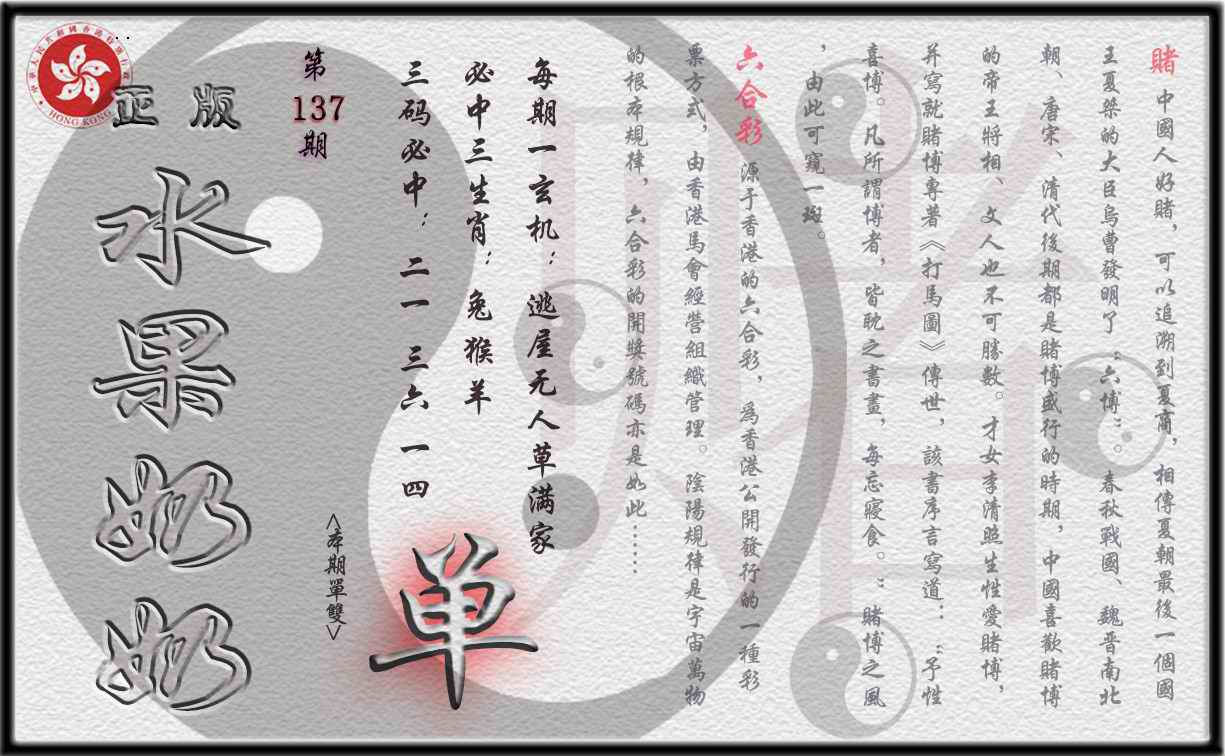 賭 中國人好賭，可以追溯到夏商，相傳夏朝最後一個國
王夏桀的大臣烏曹發明了“六博”。春秋戰國、魏晋南北
朝、唐宋、清代後期都是賭博盛行的時期，中國喜歡賭博
的帝王將相、文人也不可勝數。才女李清照生性愛賭博，
并寫就賭博專著《打馬圖》傳世，該書序言寫道：“予性
喜博。凡所謂博者，皆耽之書畫，每忘寢食。”賭博之風
，由此可窺一斑。
六合彩 源于香港的六合彩，爲香港公開發行的一種彩
票方式，由香港馬會經營組織管理。陰陽規律是宇宙萬物
的根本規律，六合彩的開獎號碼亦是如此……
每期一玄机：逃屋无人草满家
必中三生肖：兔猴羊
三码必中：二一 三六 一四
<本期單雙>
单
第
137
期
正版
水果奶奶
中華人民共和國香港特別行政區
HONG KONG